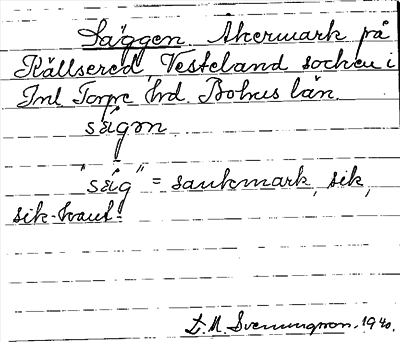 Säggen Åkermark på
Källsered, Vesteland socken i
Inl Torpe hd. Bohus län.
sägon
"säg" = sankmark, sik,
sik-
L. M. Svenungsson. 1940.